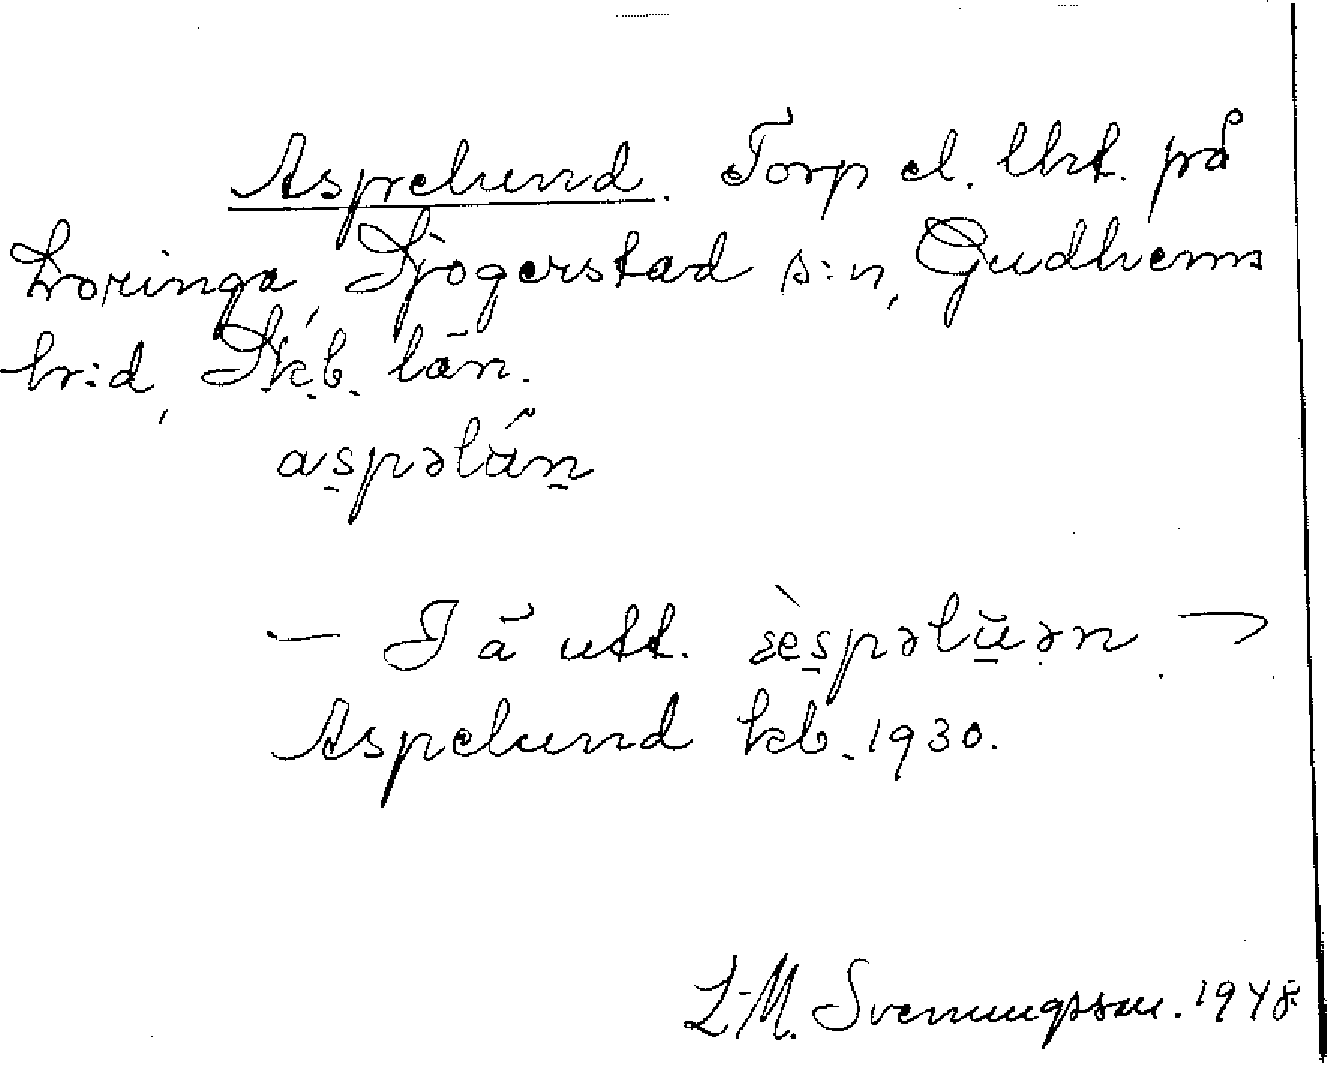 Aspelund. Torp el. lht. på
Loringa, Sjogerstad s:n, Gudhems
hr:d, Skb. län.
aspəlún
— I ä utt. æ̀spəlŭən. —
Aspelund kb. 1930.
L-M. Svenungsson. 1948.